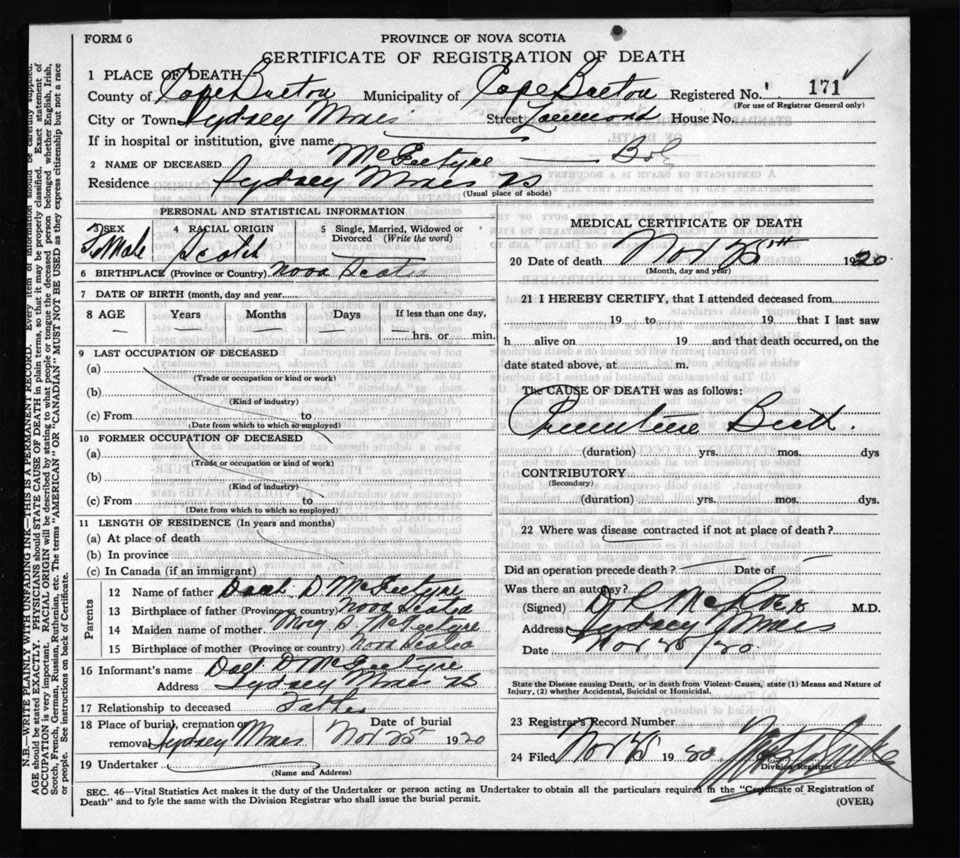 FORM 6
PROVINCE OF NOVA SCOTIA
CERTIFICATE OF REGISTRATION OF DEATH
1 PLACE OF DEATH
County of Cape Breton Municipality of Cape Breton Registered No. 171
(For use of Registrar General only)
City or Town Sydney Mines Street House No.
If in hospital or institution, give name
2 NAME OF DECEASED
Residence Sydney Mines NS
(Usual place of abode)
PERSONAL AND STATISTICAL INFORMATION
3 SEX 4 RACIAL ORIGIN 5 Single, Married, Widowed or Divorced (Write the word)
Scotch
6 BIRTHPLACE (Province or Country) Nova Scotia
7 DATE OF BIRTH (month, day and year)
8 AGE Years Months Days If less than one day,
hrs. or min.
9 LAST OCCUPATION OF DECEASED
(a)
(Trade or occupation or kind or work)
(b)
(Kind of industry)
(c) From to
(Date from which to which so employed)
10 FORMER OCCUPATION OF DECEASED
(a)
(Trade or occupation or kind of work)
(b)
(Kind of industry)
(c) From to
(Date from which to which so employed)
11 LENGTH OF RESIDENCE (In years and months)
(a) At place of death
(b) In province
(c) In Canada (if an immigrant)
Parents
12 Name of father
13 Birthplace of father (Province or country) Nova Scotia
14 Maiden name of mother
15 Birthplace of mother (Province or country) Nova Scotia
16 Informant's name
Address Sydney Mines NS
17 Relationship to deceased Father
18 Place of burial, cremation or removal Sydney Mines Date of burial Nov 25 1920
19 Undertaker
(Name and Address)
MEDICAL CERTIFICATE OF DEATH
20 Date of death Nov 25th 1920
(Month, day and year)
21 I HEREBY CERTIFY, that I attended deceased from
19 to 19 that I last saw
h alive on 19 and that death occurred, on the
date stated above, at m.
The CAUSE OF DEATH was as follows:
Premature Birth.
(duration) yrs. mos. dys
CONTRIBUTORY
(Secondary)
(duration) yrs. mos. dys.
22 Where was disease contracted if not at place of death?
Did an operation precede death? Date of
Was there an autopsy?
(Signed) M.D.
Address Sydney Mines
Date Nov 25/20.
State the Disease causing Death, or in death from Violent Causes, state (1) Means and Nature of Injury, (2) whether Accidental, Suicidal or Homicidal.
23 Registrar's Record Number
24 Filed Nov 25 1920
Division Registrar
SEC. 46—Vital Statistics Act makes it the duty of the Undertaker or person acting as Undertaker to obtain all the particulars required in the "Certificate of Registration of
Death" and to fyle the same with the Division Registrar who shall issue the burial permit.
(OVER)
N.B.—WRITE PLAINLY WITH UNFADING INK—THIS IS A PERMANENT RECORD. Every item of information should be carefully supplied.
AGE should be stated EXACTLY. PHYSICIANS should STATE CAUSE OF DEATH in plain terms, so that it may be properly classified. Exact statement of
OCCUPATION is very important. RACIAL ORIGIN will be described by stating to what people or tongue the deceased person belonged whether English, Irish,
Scotch, French, German, Russian, Ruthenian, etc. The terms "AMERICAN" OR "CANADIAN" MUST NOT BE USED as they express citizenship but not a race
or people. See instructions on back of Certificate.